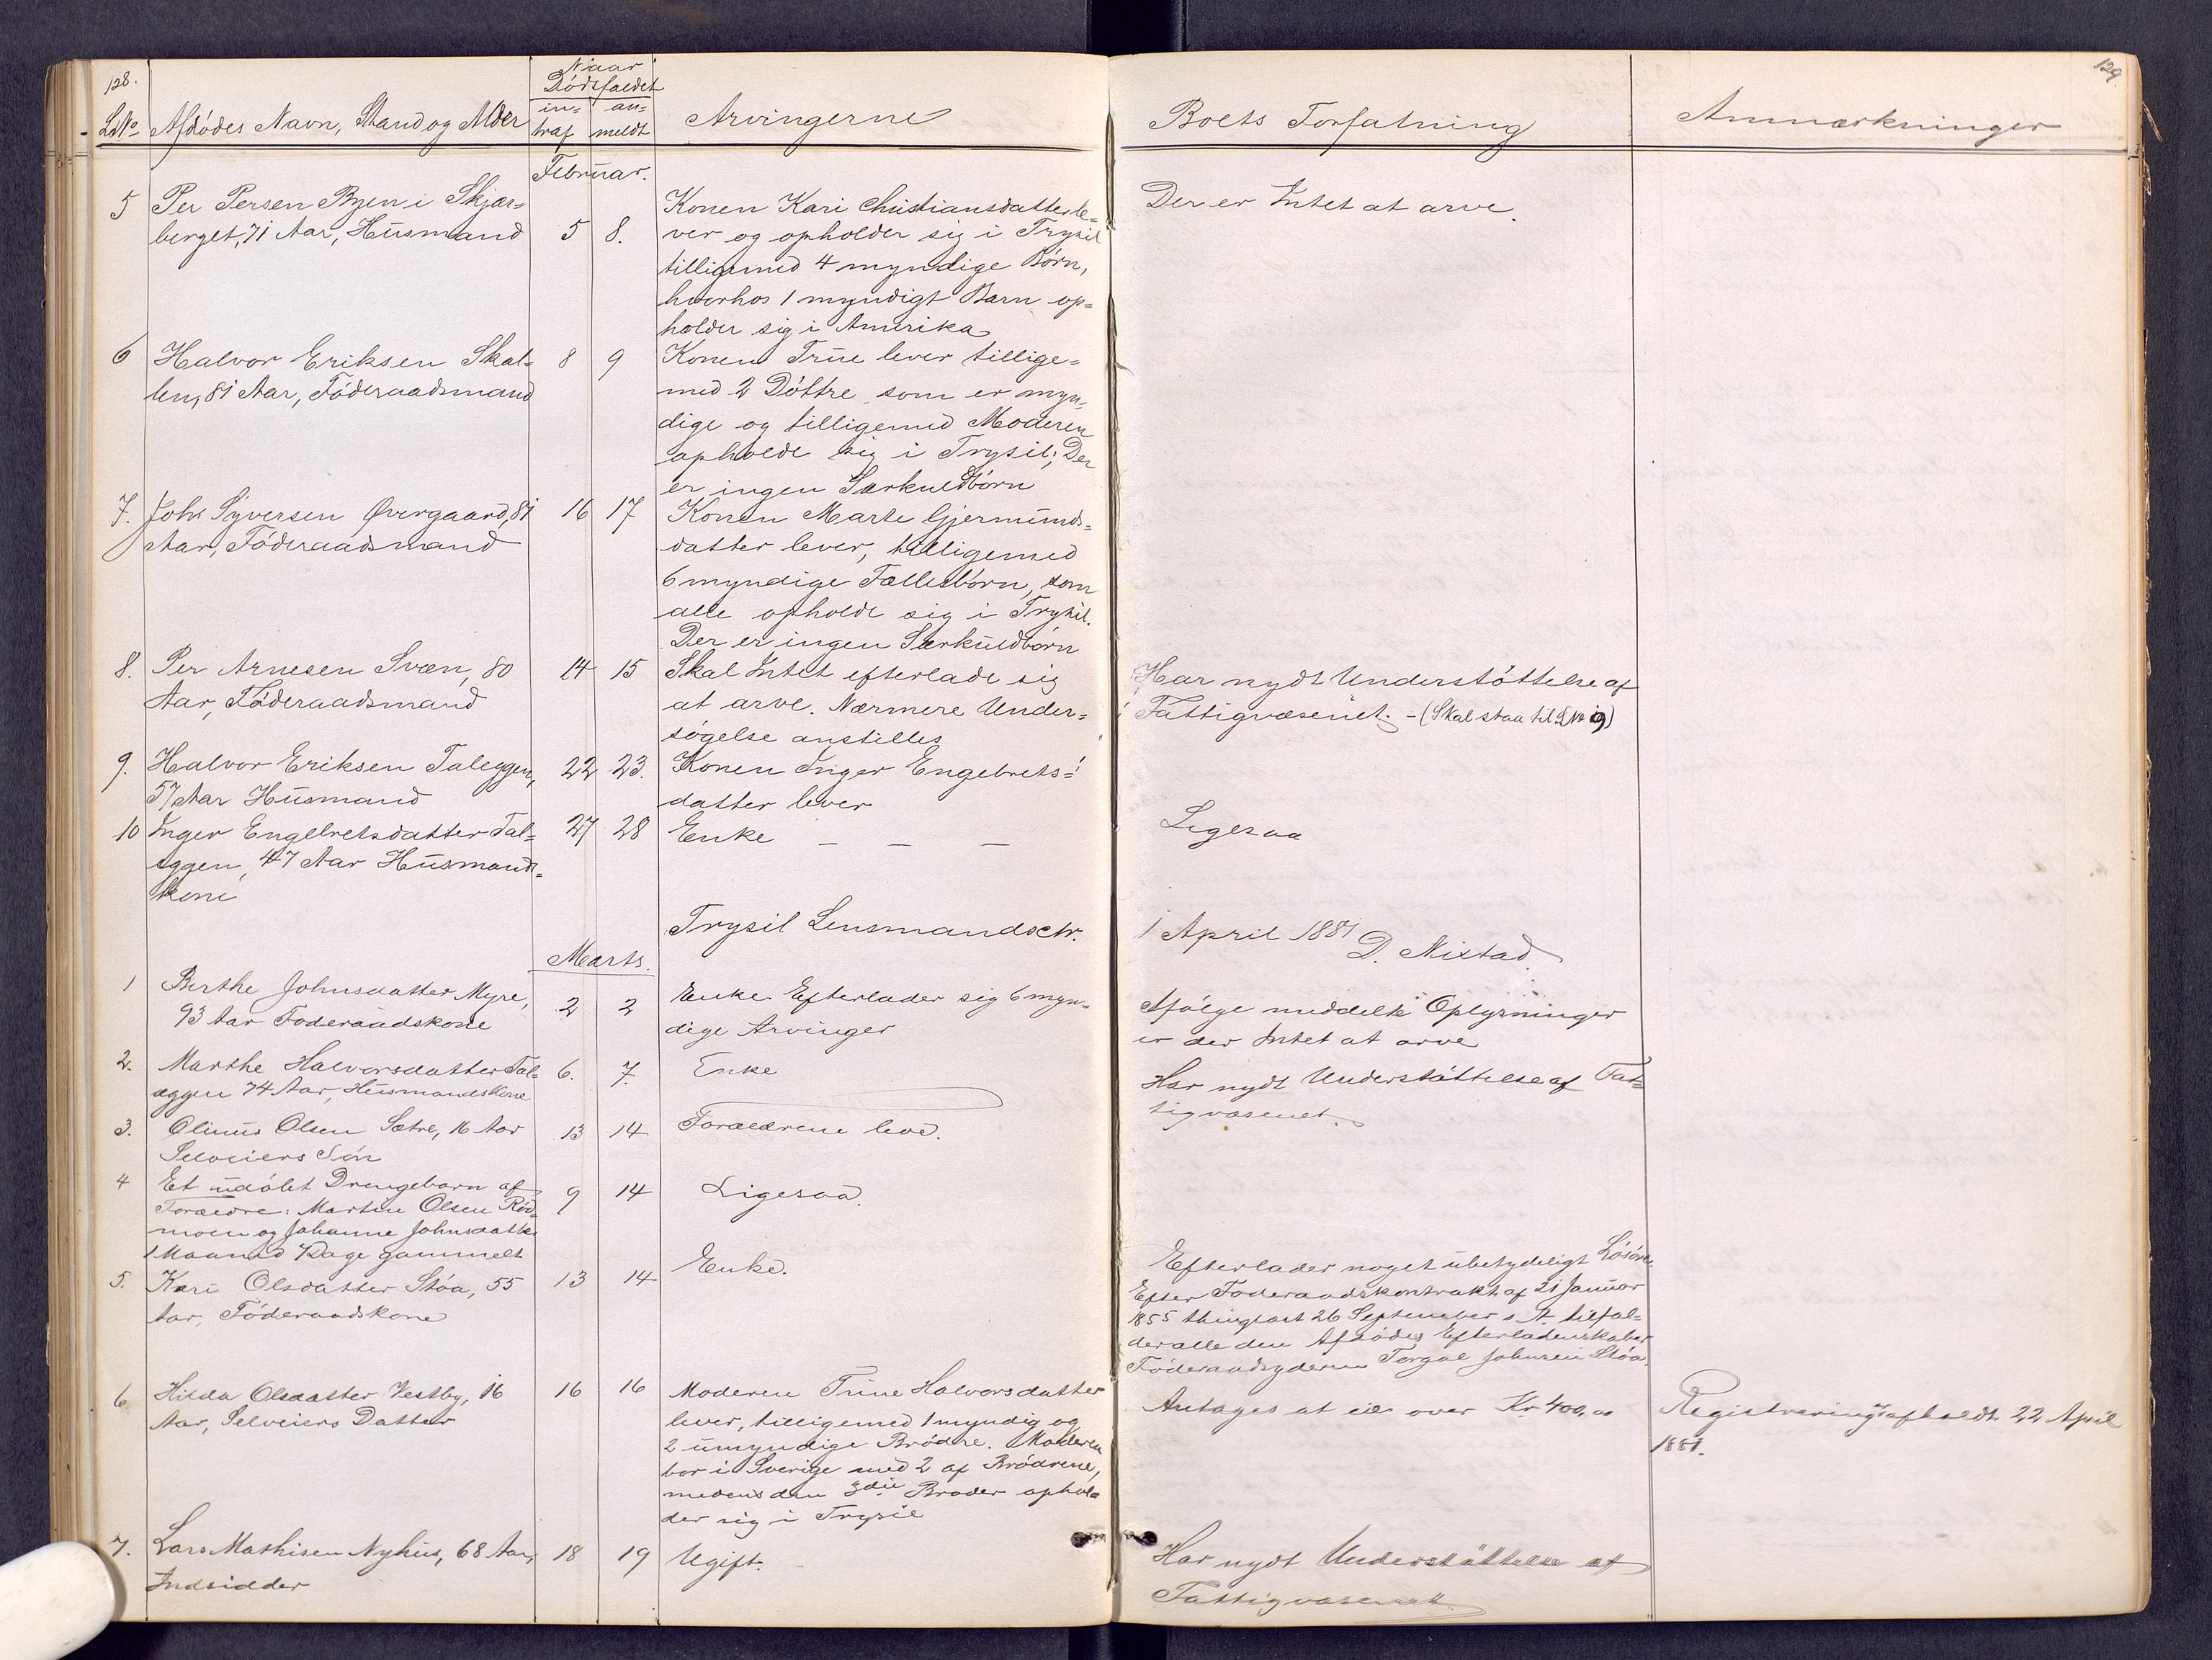 128.
LNo
Afdødes Navn, Stand og Alder
Naar
Dødsfaldet
in= an=
traf meldt
Arvingerne
Februar.
5 Per Persen Byen i Skjær= 
berget, 71 Aar, Husmand 5 8.
Konen Kari Christiansdatter le=
ver og opholder sig i Trysil
tilligemed 4 myndige Børn,
hvorhos 1 myndigt Barn op=
holder sig i Amerika
6 Halvor Eriksen Skal= 8 9
len, 81 Aar, Føderaadsmand
Konen Trine lever tillige=
med 2 Døttre som er myn=
dige og tilligemed Moderen
opholde sig i Trysil; Der
er ingen Særkuldbørn
7. John Syversen Øvergaard, 81 16 17
Aar, Føderaadsmand
Konen Marte Gjermunds=
datter lever, tilligemed
6 myndige Fællesbørn, som
alle opholde sig i Trysil.
Der er ingen Særkuldbørn
8. Per Arnesen Svæn, 80 14 15
Aar, Føderaadsmand
Skal Intet efterlade sig
at arve. Nærmere Under=
søgelse anstilles
9. Halvor Eriksen Taleggen, 22 23.
57 Aar Husmand
Konen Inger Engebrets=
datter lever
10 Inger Engebretsdatter Tal= 27 28 Enke — — —
eggen, 47 Aar Husmands=
kone
Trysil Lensmandsctr.
Marts.
1 Berthe Johnsdatter Myre, 2 2
93 Aar Føderaadskone
Enke. Efterlader sig 6 myn=
dige Arvinger
2. Marthe Halvorsdatter Tal= 6. 7. Enke
æggen 74 Aar, Husmandskone
3. Olinus Olsen Sætre, 16 Aar 13 14 Forældrene leve.
Selveiers Søn
4 Et udøbt Drengebarn af 9 14 Ligesaa.
Forældre: Martin Olsen Rød=
moen og Johanne Johnsdatter
1 Maaned Dage gammelt
5. Kari Olsdatter Støa, 55 13 14 Enke.
Aar, Føderaadskone
6 Hilda Olsdatter Vestby, 16 16 16
Aar, Selveiers Datter
Moderen Trine Halvorsdatter
lever, tilligemed 1 myndig og
2 umyndige Brødre. Moderen
bor i Sverige med 2 af Brødrene,
medens den 3die Broder ophol=
der sig i Trysil
7. Lars Mathisen Nyhus, 68 Aar, 18 19 Ugift.
Indsidder
129.
Boets Forfatning
Anmærkninger
Der er Intet at arve.
Har nydt Understøttelse af
Fattigvæsenet. – (Skal staa til LNo 9)
Ligesaa
1 April 1881
D. Nistad
Ifølge meddelte Oplysninger
er der Intet at arve
Har nydt Understøttelse af Fat=
tigvæsenet.
Efterlader noget ubetydeligt Løsøre
Efter Føderaadskontrakt af 21 Januar
1855 thinglæst 26 September s. A. tilfal=
der alle den Afdødes Efterladenskaber
Føderaadsyderen Torgal Johnsen Støa.
Antages at eie over Kr 400,00
Registrering afholdt 22 April
1881.
Har nydt Understøttelse af
Fattigvæsenet.